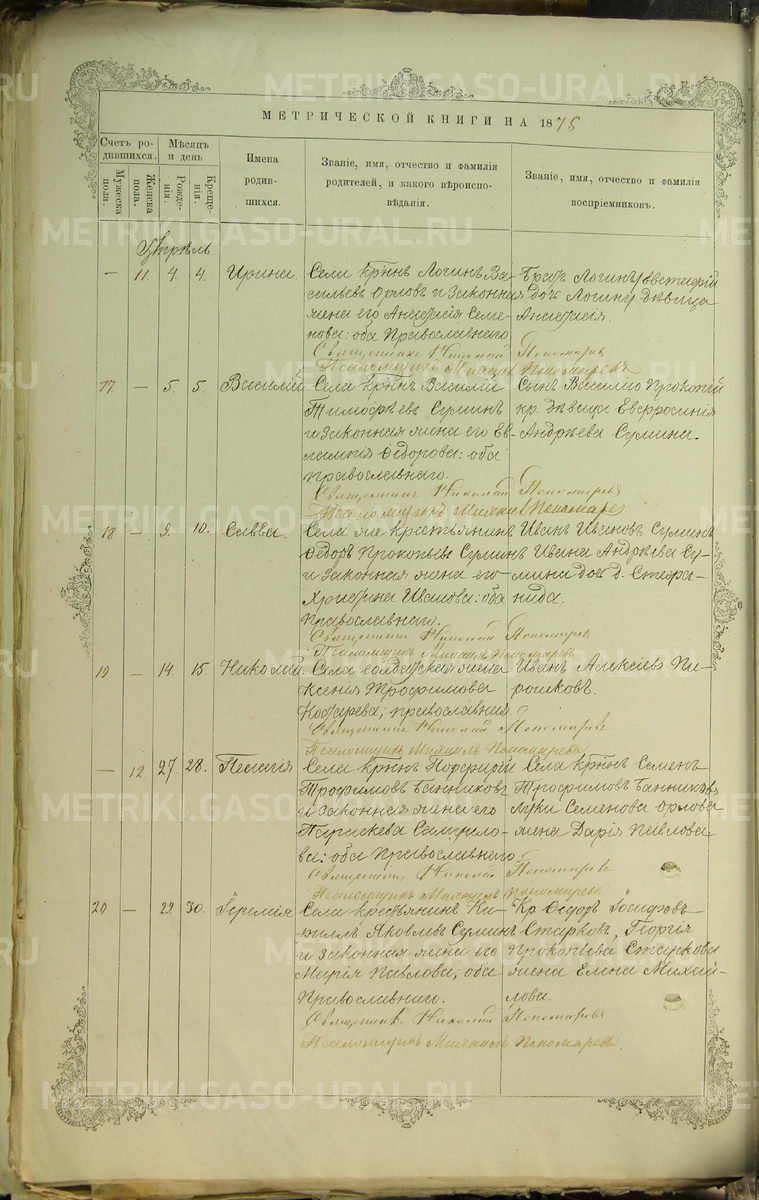 МЕТРИЧЕСКОЙ КНИГИ НА 1875
Счетъ ро-
дившихся.
Мужеска пола.
Женска пола.
Мѣсяцъ
и день
Рожде-
нія.
Креще-
нія.
Имена
родив-
шихся.
Званіе, имя, отчество и фамилія
родителей, и какого вѣроиспо-
вѣданія.
Званіе, имя, отчество и фамилія
воспріемниковъ.
Апрѣль.
— 11. 4. 4. Ирина.
Села кр҃нъ Логинъ Ва-
сильевъ Орловъ и законная
жена его Анастасія Семе-
нова: оба Православнаго
Братъ Логину
дочь Логину дѣвица
Анастасія.
Священникъ Николай Пономаревъ
Псаломщикъ Михаилъ Пономаревъ
17 — 5. 5. Василій
Села кр҃нъ Василій
Тимофѣевъ Суминъ
и законная жена его Ев-
лампія Ѳедорова: оба
Православнаго.
Сынъ Василію Прокопій
кр. дѣвица Евфросинія
Андрѣева Сумина.
Священникъ Николай Пономаревъ
Псаломщикъ Михаилъ Пономаревъ
18 — 9. 10. Савва.
Села же крестьянинъ
Ѳедоръ Прокопьевъ Суминъ
и законная жена его
Христина Иванова: оба
Православнаго.
Иванъ Ивановъ Суминъ
Ивана Андрѣева Су-
мина дочь д. Стефа-
нида.
Священникъ Николай Пономаревъ
Псаломщикъ Михаилъ Пономаревъ
19 — 14 15. Николай.
Села солдатская жена
Ксенія Трофимова
Косарева; православная
Иванъ Алексѣевъ Пи-
рожковъ.
Священникъ Николай Пономаревъ
Псаломщикъ Михаилъ Пономаревъ
— 12. 27. 28. Пелагія
Села кр҃нъ Порфирій
Трофимовъ Банниковъ
и законная жена его
Параскева Самуило-
ва: оба Православнаго
Села кр҃нъ Семенъ
Трофимовъ Банниковъ,
Луки Семенова Орлова
жена Дарія Павлова
Священникъ Николай Пономаревъ
Псаломщикъ Михаилъ Пономаревъ
20 — 29. 30. Іеремія
Села крестьянинъ Ки-
риллъ Яковлевъ Суминъ
и законная жена его
Марія Павлова; оба
Православнаго.
Кр Ѳедоръ Іосифовъ
Старковъ, Георгія
Прокопьева Старкова
жена Елена Михай-
лова.
Священникъ Николай Пономаревъ
Псаломщикъ Михаилъ Пономаревъ.
METRIKI.GASO-URAL.RU